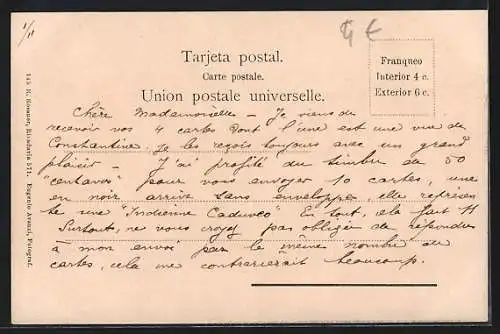 1/11
4 €
Tarjeta postal.
Carte postale.
Union postale universelle.
Franqueo
Interior 4 c.
Exterior 6 c.
145 R. Rosauer, Rivadavia 571. Eugenio Avanzi, Fotograf.
Chère Mademoiselle – Je viens de
recevoir vos 4 cartes dont l'une est une vue de
Constantine. Je les reçois toujours avec un grand
plaisir. J'ai profité du timbre de 50
"centavos" pour vous envoyer 10 cartes, une
en noir arrive sans enveloppe, elle représen
te une "Indienne Caduveo" En tout, cela fait 11
Surtout, ne vous croyez pas obligée de répondre
à mon envoi par le même nombre de
cartes, cela me contrarierait beaucoup.